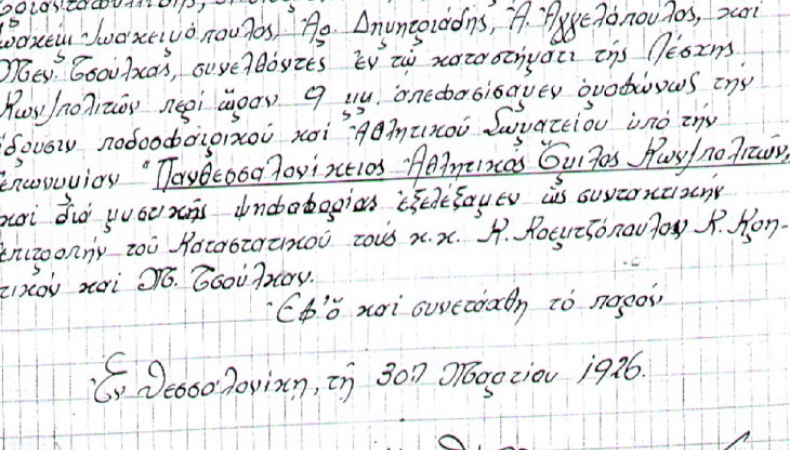 Ἰωακεὶμ Ἰωακειμόπουλος, Ἀρ. Δημητριάδης, Ἀ. Ἀγγελόπουλος, καὶ
Μεν. Τσούλκας, συνελθόντες ἐν τῷ καταστήματι τῆς Λέσχης
Κων/πολιτῶν περὶ ὥραν 9 μμ. ἀπεφασίσαμεν ὁμοφώνως τὴν
ἵδρυσιν ποδοσφαιρικοῦ καὶ Ἀθλητικοῦ Σωματείου ὑπὸ τὴν
ἐπωνυμίαν "Πανθεσσαλονίκειος Ἀθλητικὸς Ὅμιλος Κων/πολιτῶν,
καὶ διὰ μυστικῆς ψηφοφορίας ἐξελέξαμεν ὡς συντακτικὴν
ἐπιτροπὴν τοῦ Καταστατικοῦ τοὺς κ.κ. Κ. Κρεμτζόπουλον Κ. Κρη-
τικὸν καὶ Μ. Τσούλκαν.
Ἐφ' ὃ καὶ συνετάχθη τὸ παρόν
Ἐν Θεσσαλονίκῃ, τῇ 30ῃ Μαρτίου 1926.